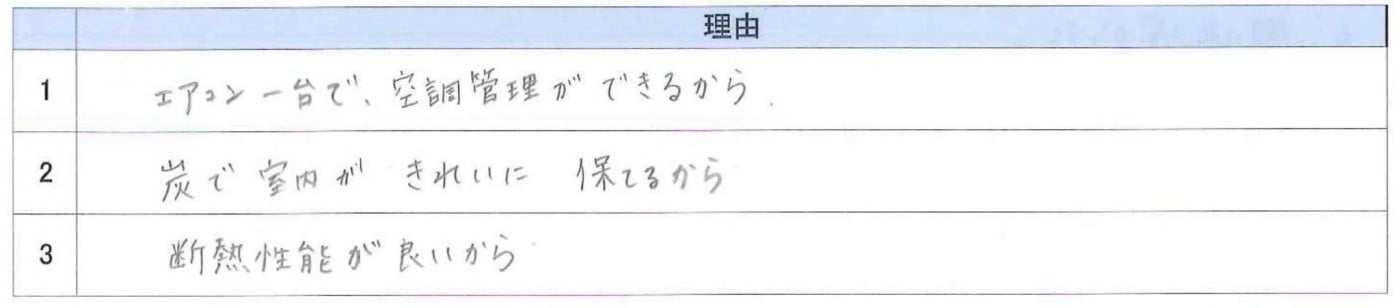 理由
1 エアコン一台で、空調管理ができるから.
2 炭で室内がきれいに 保てるから
3 断熱性能が良いから